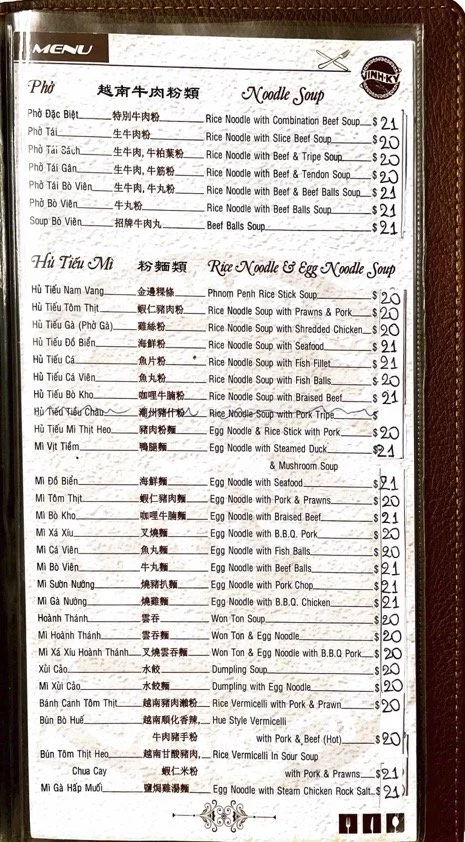 MENU
VINH-KY
Phở 越南牛肉粉類 Noodle Soup
Phở Đặc Biệt 特別牛肉粉 Rice Noodle with Combination Beef Soup $ 21
Phở Tái 生牛肉粉 Rice Noodle with Slice Beef Soup $ 20
Phở Tái Sách 生牛肉, 牛柏葉粉 Rice Noodle with Beef & Tripe Soup $ 20
Phở Tái Gân 生牛肉, 牛筋粉 Rice Noodle with Beef & Tendon Soup $ 20
Phở Tái Bò Viên 生牛肉, 牛丸粉 Rice Noodle with Beef & Beef Balls Soup $ 21
Phở Bò Viên 牛丸粉 Rice Noodle with Beef Balls Soup $ 21
Soup Bò Viên 招牌牛肉丸 Beef Balls Soup $ 21
Hủ Tiếu Mì 粉麵類 Rice Noodle & Egg Noodle Soup
Hủ Tiếu Nam Vang 金邊粿條 Phnom Penh Rice Stick Soup $ 20
Hủ Tiếu Tôm Thịt 蝦仁豬肉粉 Rice Noodle Soup with Prawns & Pork $ 20
Hủ Tiếu Gà (Phở Gà) 雞絲粉 Rice Noodle Soup with Shredded Chicken $ 20
Hủ Tiếu Đồ Biển 海鮮粉 Rice Noodle Soup with Seafood $ 21
Hủ Tiếu Cá 魚片粉 Rice Noodle Soup with Fish Fillet $ 21
Hủ Tiếu Cá Viên 魚丸粉 Rice Noodle Soup with Fish Balls $ 20
Hủ Tiếu Bò Kho 咖哩牛腩粉 Rice Noodle Soup with Braised Beef $ 21
Hủ Tiếu Tiều Châu 潮州豬什粉 Rice Noodle Soup with Pork Tripe $
Hủ Tiếu Mì Thịt Heo 豬肉粉麵 Egg Noodle & Rice Stick with Pork $ 20
Mì Vịt Tiềm 鴨腿麵 Egg Noodle with Steamed Duck $ 21
& Mushroom Soup
Mì Đồ Biển 海鮮麵 Egg Noodle with Seafood $ 21
Mì Tôm Thịt 蝦仁豬肉麵 Egg Noodle with Pork & Prawns $ 20
Mì Bò Kho 咖哩牛腩麵 Egg Noodle with Braised Beef $ 21
Mì Xá Xíu 叉燒麵 Egg Noodle with B.B.Q. Pork $ 20
Mì Cá Viên 魚丸麵 Egg Noodle with Fish Balls $ 20
Mì Bò Viên 牛丸麵 Egg Noodle with Beef Balls $ 21
Mì Sườn Nướng 燒豬扒麵 Egg Noodle with Pork Chop $ 21
Mì Gà Nướng 燒雞麵 Egg Noodle with B.B.Q. Chicken $ 21
Hoành Thánh 雲吞 Won Ton Soup $ 20
Mì Hoành Thánh 雲吞麵 Won Ton & Egg Noodle $ 20
Mì Xá Xíu Hoành Thánh 叉燒雲吞麵 Won Ton & Egg Noodle with B.B.Q Pork $ 20
Xủi Cảo 水餃 Dumpling Soup $ 20
Mì Xủi Cảo 水餃麵 Dumpling with Egg Noodle $ 20
Bánh Canh Tôm Thịt 越南豬肉瀨粉 Rice Vermicelli with Pork & Prawn $ 20
Bún Bò Huế 越南順化香辣, Hue Style Vermicelli
牛肉豬手粉 with Pork & Beef (Hot) $ 20
Bún Tôm Thịt Heo 越南甘酸豬肉, Rice Vermicelli In Sour Soup
Chua Cay 蝦仁米粉 with Pork & Prawns $ 21
Mì Gà Hấp Muối 鹽焗雞湯麵 Egg Noodle with Steam Chicken Rock Salt $ 21